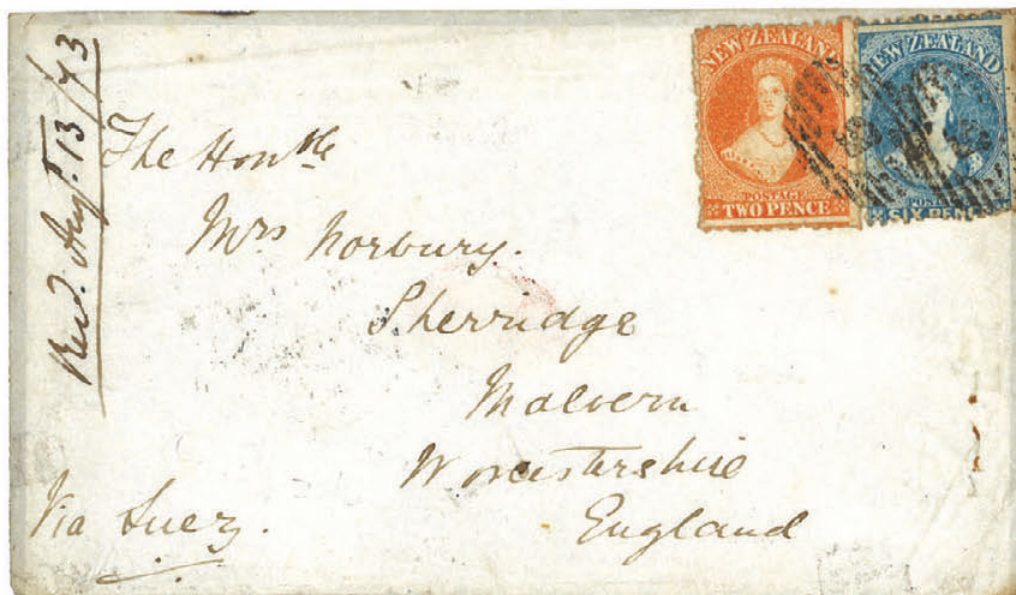 Recd. Augt. 13/73
The Honble
Mrs Norbury.
Sherridge
Malvern
Worcestershire
England
Via Suez.
NEW ZEALAND
POSTAGE
TWO PENCE
NEW ZEALAND
POSTAGE
SIX PENCE